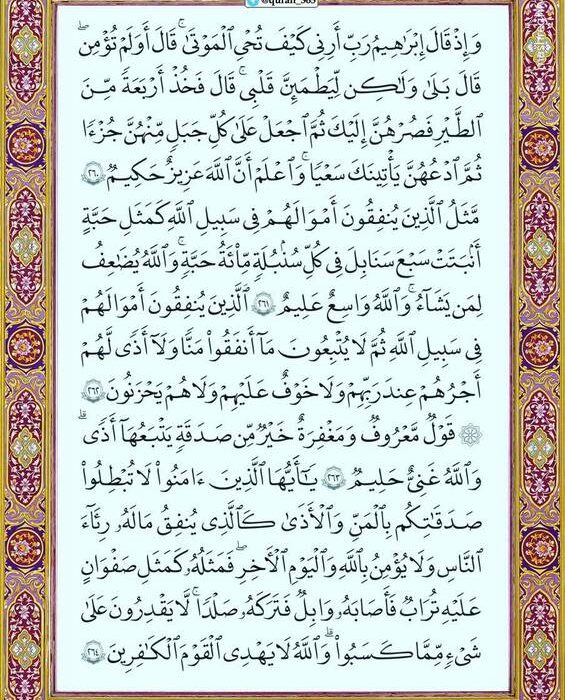 @quran_365
وَإِذْ قَالَ إِبْرَٰهِـۧمُ رَبِّ أَرِنِى كَيْفَ تُحْىِ ٱلْمَوْتَىٰ ۖ قَالَ أَوَلَمْ تُؤْمِن ۖ
قَالَ بَلَىٰ وَلَـٰكِن لِّيَطْمَئِنَّ قَلْبِى ۖ قَالَ فَخُذْ أَرْبَعَةً مِّنَ
ٱلطَّيْرِ فَصُرْهُنَّ إِلَيْكَ ثُمَّ ٱجْعَلْ عَلَىٰ كُلِّ جَبَلٍ مِّنْهُنَّ جُزْءًا
ثُمَّ ٱدْعُهُنَّ يَأْتِينَكَ سَعْيًا ۚ وَٱعْلَمْ أَنَّ ٱللَّهَ عَزِيزٌ حَكِيمٌ ٢٦٠
مَّثَلُ ٱلَّذِينَ يُنفِقُونَ أَمْوَٰلَهُمْ فِى سَبِيلِ ٱللَّهِ كَمَثَلِ حَبَّةٍ
أَنۢبَتَتْ سَبْعَ سَنَابِلَ فِى كُلِّ سُنۢبُلَةٍ مِّا۟ئَةُ حَبَّةٍ ۗ وَٱللَّهُ يُضَـٰعِفُ
لِمَن يَشَآءُ ۗ وَٱللَّهُ وَٰسِعٌ عَلِيمٌ ٢٦١ ٱلَّذِينَ يُنفِقُونَ أَمْوَٰلَهُمْ
فِى سَبِيلِ ٱللَّهِ ثُمَّ لَا يُتْبِعُونَ مَآ أَنفَقُوا۟ مَنًّا وَلَآ أَذًى لَّهُمْ
أَجْرُهُمْ عِندَ رَبِّهِمْ وَلَا خَوْفٌ عَلَيْهِمْ وَلَا هُمْ يَحْزَنُونَ ٢٦٢
۞ قَوْلٌ مَّعْرُوفٌ وَمَغْفِرَةٌ خَيْرٌ مِّن صَدَقَةٍ يَتْبَعُهَآ أَذًى ۗ
وَٱللَّهُ غَنِىٌّ حَلِيمٌ ٢٦٣ يَـٰٓأَيُّهَا ٱلَّذِينَ ءَامَنُوا۟ لَا تُبْطِلُوا۟
صَدَقَـٰتِكُم بِٱلْمَنِّ وَٱلْأَذَىٰ كَٱلَّذِى يُنفِقُ مَالَهُۥ رِئَآءَ
ٱلنَّاسِ وَلَا يُؤْمِنُ بِٱللَّهِ وَٱلْيَوْمِ ٱلْـَٔاخِرِ ۖ فَمَثَلُهُۥ كَمَثَلِ صَفْوَانٍ
عَلَيْهِ تُرَابٌ فَأَصَابَهُۥ وَابِلٌ فَتَرَكَهُۥ صَلْدًا ۖ لَّا يَقْدِرُونَ عَلَىٰ
شَىْءٍ مِّمَّا كَسَبُوا۟ ۗ وَٱللَّهُ لَا يَهْدِى ٱلْقَوْمَ ٱلْكَـٰفِرِينَ ٢٦٤